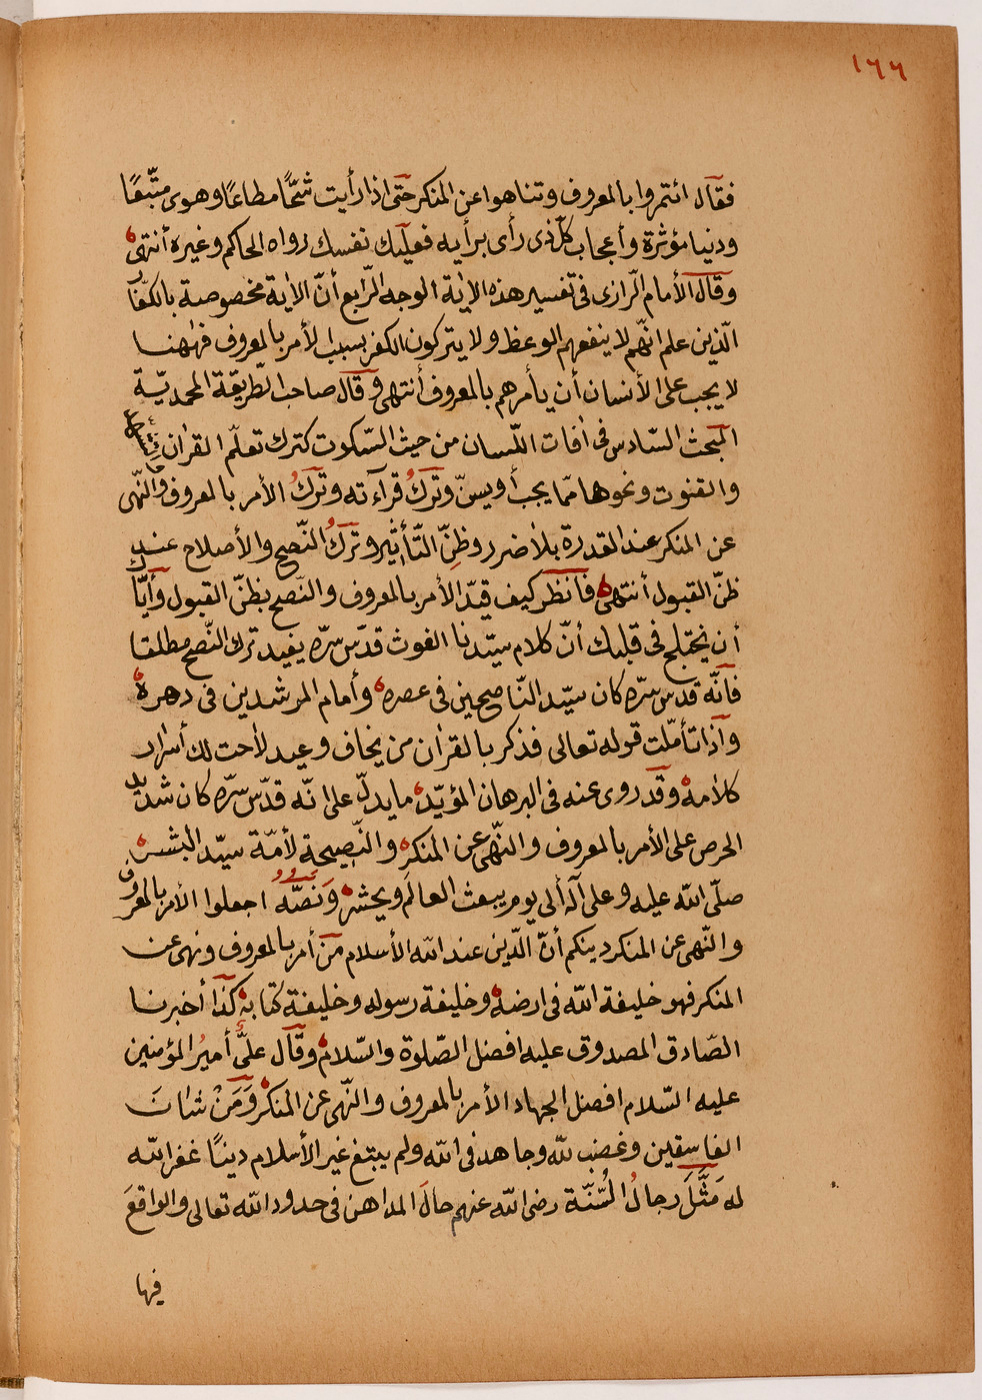 ١٦٦
فقال ائتمروا بالمعروف وتناهوا عن المنكر حتى اذا رأيت شحًّا مطاعًا وهوى متّبعًا
ودنيا مؤثرة وأعجاب كلّ ذى رأى برأيه فعليك نفسك رواه الحاكم وغيره أنتهى
وقال الأمام الرّازى فى تفسير هذه الاٰية الوجه الرّابع أنّ الاٰية مخصوصة بالكفّار
الّذين علم انّهم لا ينفعهم الوعظ ولا يتركون الكفر بسبب الأمر بالمعروف فهٰهنا
لا يجب على الأنسان أن يأمرهم بالمعروف أنتهى وقال صاحب الطّريقة المحمديّة
المبحث السّادس فى اٰفات اللّسان من حيث السّكوت كترك تعلّم القراٰن
والقنوت ونحوها ممّا يجب أو يسنّ وتركُ قرآءته وتركُ الأمر بالمعروف والنّهى
عن المنكر عند القدرة بلاٰ ضرر وظنّ التّأثير وتركُ النّصح والأصلاح عند
ظنّ القبول أنتهى فأنظر كيف قيّد الأمر بالمعروف والنّصح بظنّ القبول وأيّاك
أن يختبلج فى قلبك أنّ كلام سيّدنا الغوث قدّس سرّه يفيد ترك النّصح مطلقا
فأنّه قدس سرّه كان سيّد النّاصحين فى عصره وأمام المرشدين فى دهره
وأذا تأملّت قوله تعالى فذكر بالقراٰن من يخاف وعيد لاٰحت لك أسرار
كلاٰمه وقد روى عنه فى البرهان المؤيّد ما يدلّ على انّه قدّس سرّه كان شديد
الحرص على الأمر بالمعروف والنّهى عن المنكر والنّصيحة لأمّة سيّد البشر
صلّى اللّه عليه وعلى آله ألى يوم يبعث العالم ويحشر ونصّه اجعلوا الأمر بالمعروف
والنّهى عن المنكر دينكم أنّ الدّين عند اللّه الأسلام من أمر بالمعروف ونهى عن
المنكر فهو خليفة اللّه فى ارضه وخليفة رسوله وخليفة كتابه كذا أخبرنا
الصّادق المصدوق عليه افضل الصّلوة والسّلام وقال علىٌّ أميرُ المؤمنين
عليه السّلام افضل الجهاد الأمر بالمعروف والنّهى عن المنكر وَمَنْ شاٰنَ
الفاسقين وغضب للّه وجاهد فى اللّه ولم يبتغ غير الأسلام دينًا غفر اللّه
له مَثَّلَ رجالُ السُّنّة رضى اللّه عنهم حالَ المداهن فى حدود اللّه تعالى والواقعَ
فيها